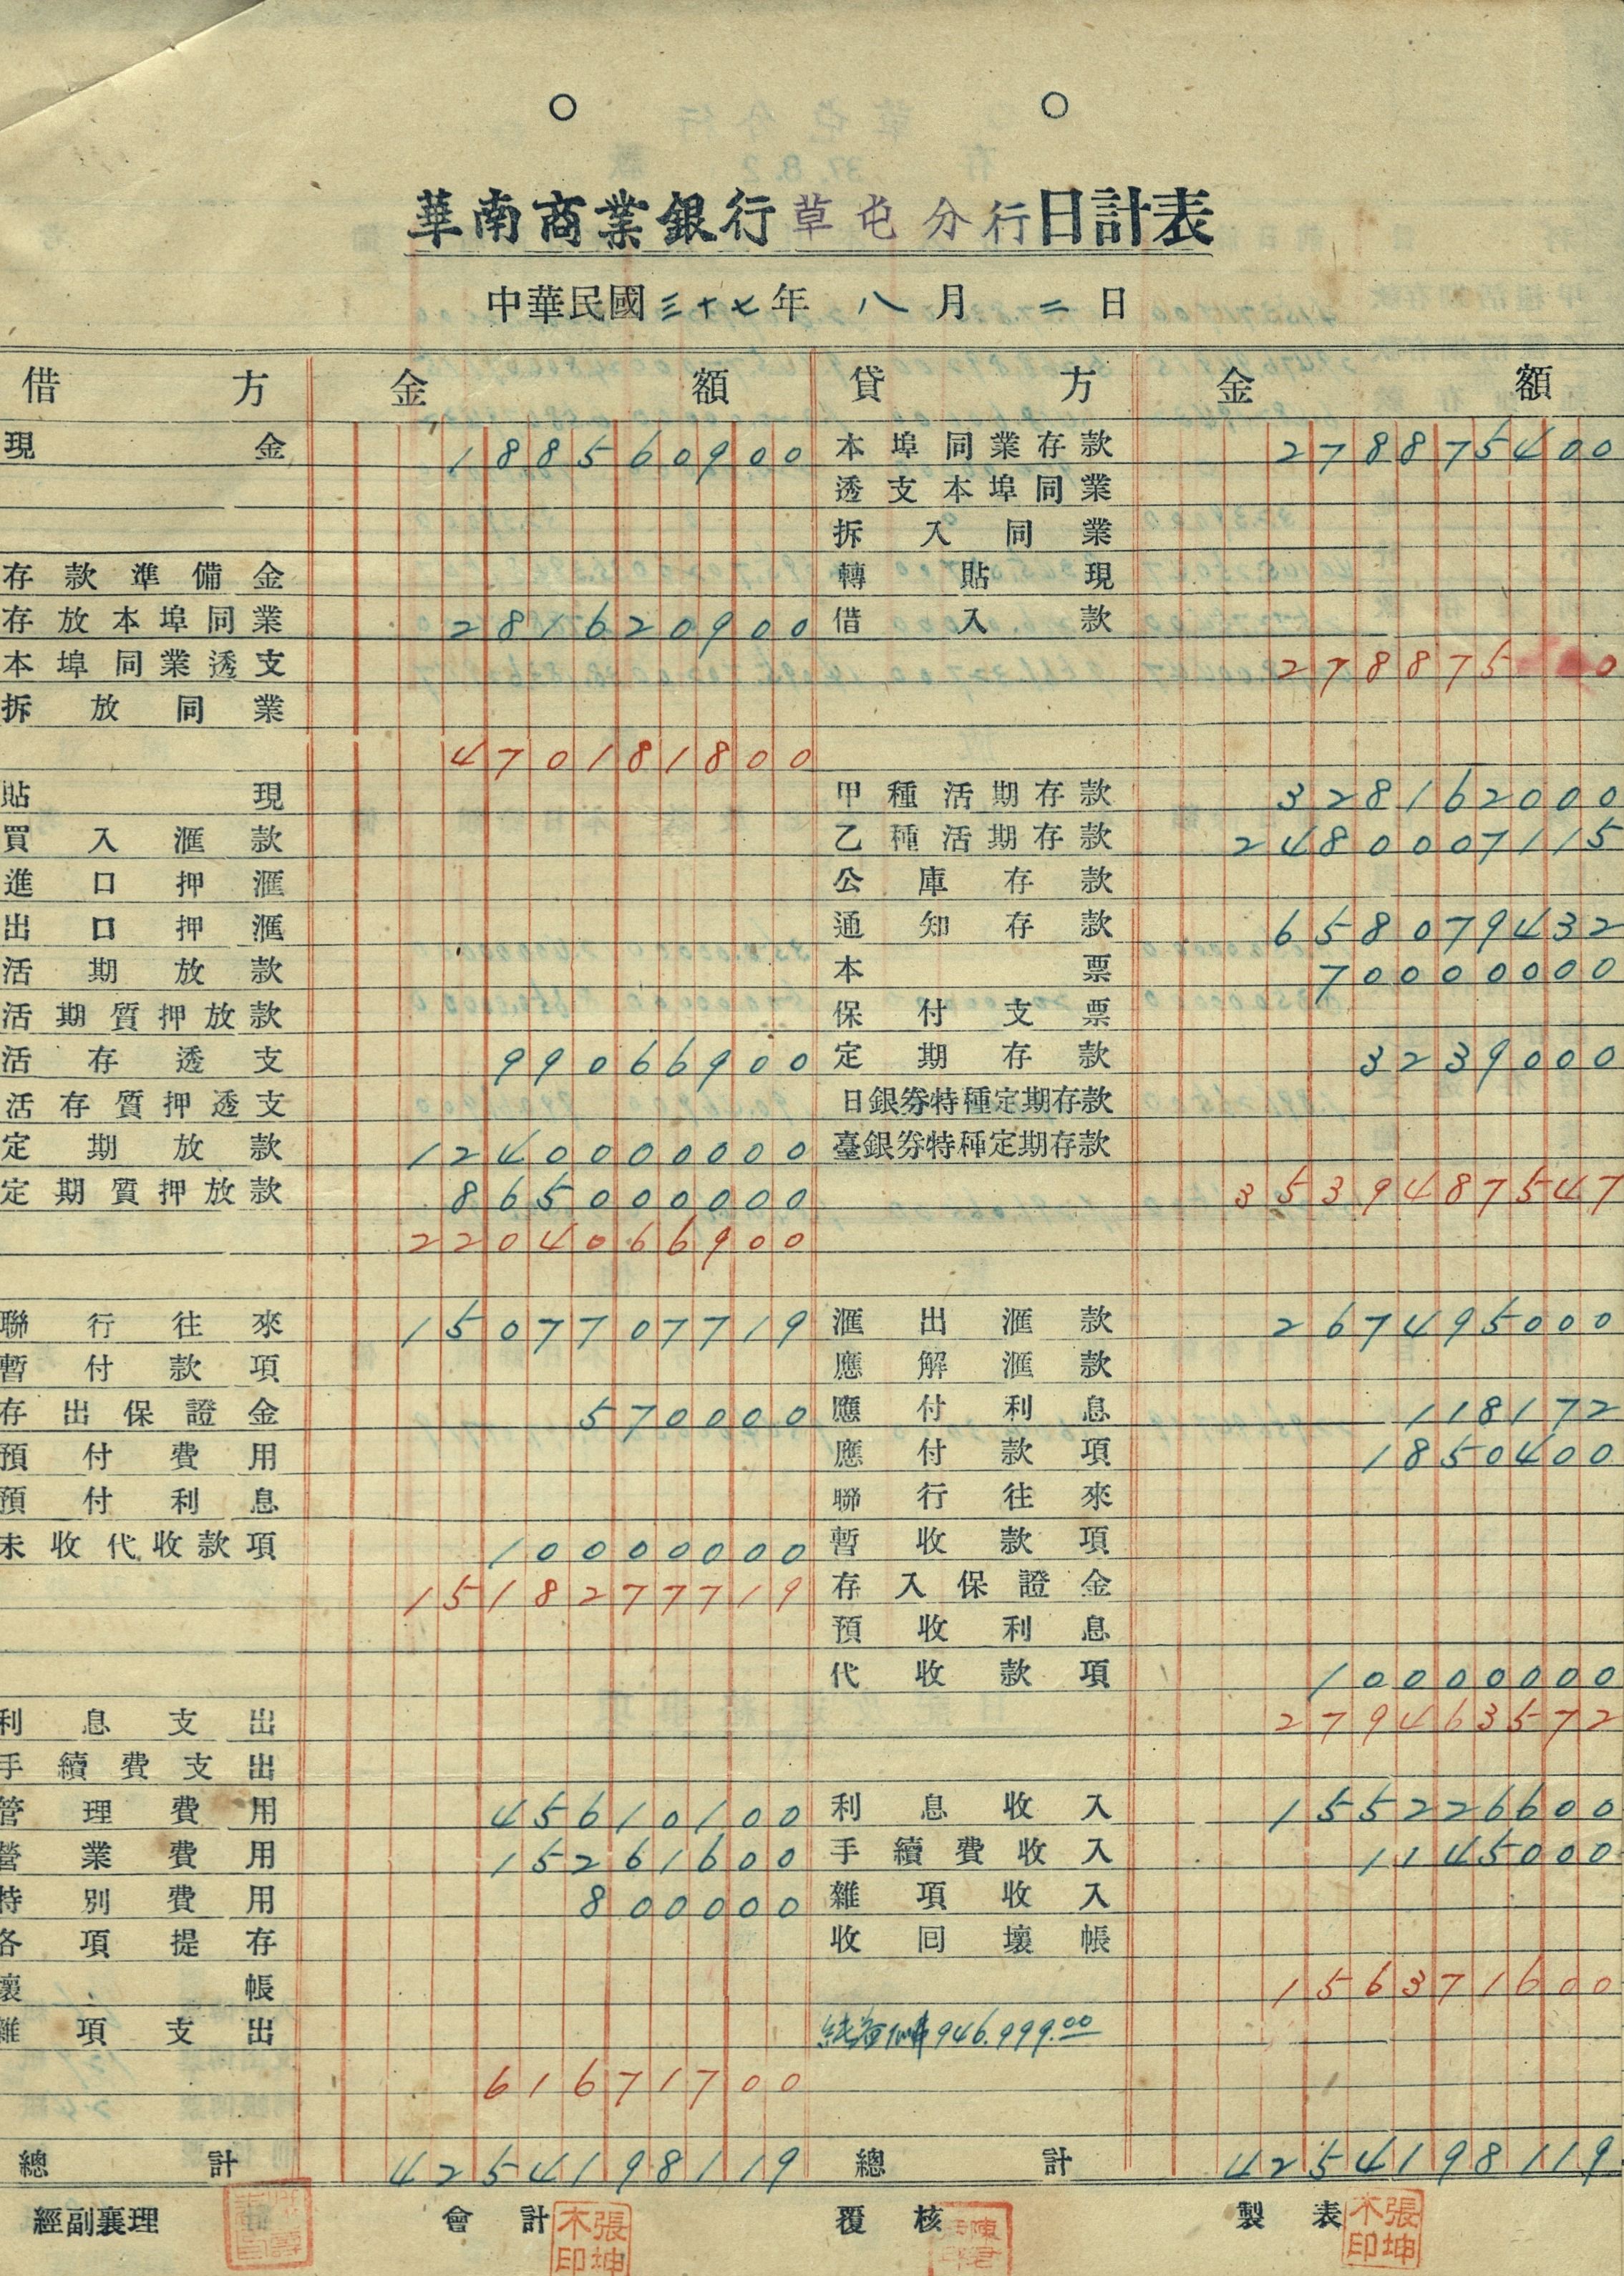 華南商業銀行草屯分行日計表
中華民國三十七年 八月 二日
借方 金額 貸方 金額
現金 188560900 本埠同業存款 278875400
透支本埠同業
拆入同業
存款準備金 轉貼現
存放本埠同業 281620900 借入款
本埠同業透支 278875 0
拆放同業
470181800
貼現 甲種活期存款 328162000
買入滙款 乙種活期存款 2480007115
進口押滙 公庫存款
出口押滙 通知存款 658079432
活期放款 本票 70000000
活期質押放款 保付支票
活存透支 99066900 定期存款 3239000
活存質押透支 日銀券特種定期存款
定期放款 1240000000 臺銀券特種定期存款
定期質押放款 865000000 3539487547
2204066900
聯行往來 1507707719 滙出滙款 267495000
暫付款項 應解滙款
存出保證金 570000 應付利息 118172
預付費用 應付款項 1850400
預付利息 聯行往來
未收代收款項 10000000 暫收款項
1518277719 存入保證金
預收利息
代收款項 10000000
利息支出 279463572
手續費支出
管理費用 45610100 利息收入 155226600
營業費用 15261600 手續費收入 1145000
特別費用 800000 雜項收入
各項提存 收回壞帳
壞帳 156371600
雜項支出 純益 946.999.00
61671700
總計 4254198119 總計 4254198119
經副襄理 會計 覆核 製表
張坤木印 張坤木印